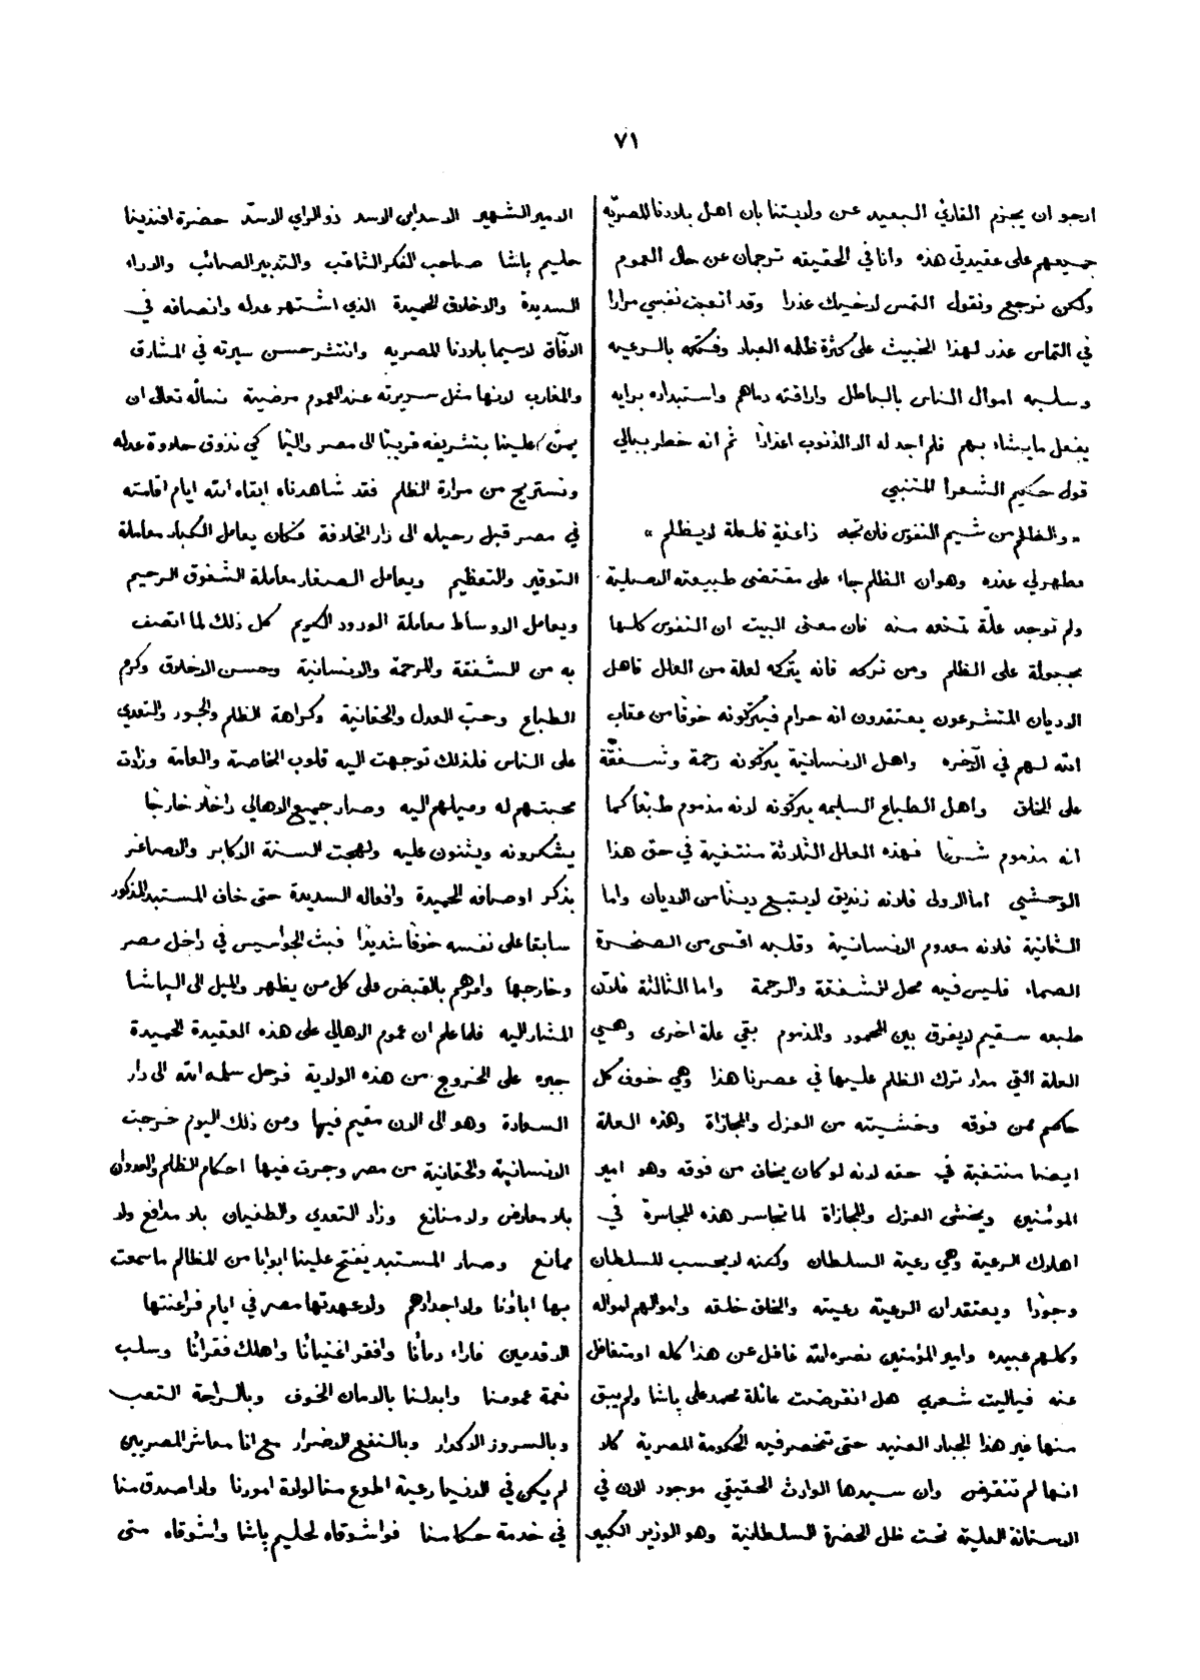 ٧١
ارجو ان يجزم القاري البعيد عن ولايتنا بان اهل بلادنا المصريّه
جميعهم على عقيدتي هذه وانا في الحقيقه ترجمان عن حال العموم
ولكن نرجع ونقول التمس لاخيك عذرا وقد اتعبت نفسي مرارا
في التماس عذر لهذا الخبيث على كثرة ظلمه العباد وفتكه بالرعيه
وسلبه اموال الناس بالباطل واراقته دماهم واستبداده برايه
يفعل ما يشاء بهم فلم اجد له الا الذنوب اعذارًا ثم انه خطر ببالي
قول حكيم الشعرا المتنبي
« والظلم من شيم النفوس فان تجد ذا عفة فلعلة لا يظلم »
فظهر لي عذره وهو ان الظلم جاء على مقتضى طبيعته الاصلية
ولم توجد علّة تمنعه منه فان معنى البيت ان النفوس كلها
مجبولة على الظلم ومن تركه فانه يتركه لعلة من العلل فاهل
الاديان المتشرعون يعتقدون انه حرام فيتركونه خوفًا من عقاب
الله لهم في الآخره واهل الانسانية يتركونه رحمة وشفقّة
على الخلق واهل الطباع السليمه يتركونه لانه مذموم طبعًا كما
انه مذموم شرعًا فهذه العلل الثلاثة منتفية في حق هذا
الوحشي اما الاولى فلانه زنديق لا يتبع دينًا من الاديان واما
الثانية فلانه معدوم الانسانية وقلبه اقسى من الصخرة
الصماء فليس فيه محل للشفقة والرحمة واما الثالثة فلانّ
طبعه سقيم لا يفرق بين المحمود والمذموم بقي علة اخرى وهي
العلة التي مدار ترك الظلم عليها في عصرنا هذا وهي خوف كل
حاكم ممن فوقه وخشيته من العزل والمجازاة وهذه العلة
ايضا منتفية في حقه لانه لو كان يخاف من فوقه وهو امير
المؤمنين ويخشى العزل والمجازاة لما تجاسر هذه المجاسرة في
اهلاك الرعية وهي رعية السلطان ولكنه لا يحسب للسلطان
وجودًا ويعتقد ان الرعية رعيته والخلق خلقه واموالهم امواله
وكلهم عبيده وامير المؤمنين نصره الله غافل عن هذا كله او متغافل
عنه فياليت شعري هل انقرضت عائلة محمد على باشا ولم يبق
منها غير هذا الجبار العنيد حتى تنحصر فيه الحكومة المصرية كلا
انها لم تنقرض وان سيدها الوارث الحقيقي موجود الان في
الاستانة العلية تحت ظل الحضرة السلطانية وهو الوزير الكبير
الامير الشهير الاسد ابن الاسد ذو الراي الاسدّ حضرة افندينا
حليم باشا صاحب الفكر الثاقب والتدبير الصائب والاراء
السديدة والاخلاق الحميدة الذي اشتهر عدله وانصافه في
الآفاق لاسيما بلادنا المصريه وانتشر حسن سيرته في المشارق
والمغارب لانها مثل سريرته عند العموم مرضية نساله تعالى ان
يمنّ علينا بتشريفه قريبًا الى مصر والينا كي نذوق حلاوة عدله
ونستريح من مرارة الظلم فقد شاهدناه ابقاه الله ايام اقامته
في مصر قبل رحيله الى دار الخلافة فكان يعامل الكبار معاملة
التوقير والتعظيم ويعامل الصغار معاملة الشفوق الرحيم
ويعامل الاوساط معاملة الودود الكريم كل ذلك لما اتصف
به من الشفقة والمرحمة والانسانية وحسن الاخلاق وكرم
الطباع وحبّ العدل والحقانية وكراهة الظلم والجور والتعدي
على الناس فلذلك توجهت اليه قلوب الخاصة والعامة وزادت
محبتهم له وميلهم اليه وصار جميع الاهالي داخلا خارجًا
يشكرونه ويثنون عليه ولهجت السنة الاكابر والاصاغر
بذكر اوصافه الحميدة وافعاله السديدة حتى خاف المستبد المذكور
سابقا على نفسه خوفًا شديدًا فبث الجواسيس في داخل مصر
وخارجها وامرهم بالقبض على كل من يظهر والميل الى الباشا
المشار اليه فلما علم ان عموم الاهالي على هذه العقيدة الحميدة
جبره على الخروج من هذه الولاية فرحل سلمه الله الى دار
السعادة وهو الى الان مقيم فيها ومن ذلك اليوم خرجت
الانسانية والحقانية من مصر وجرت فيها احكام الظلم والعدوان
بلا معارض ولا منازع وزاد التعدي والطغيان بلا مدافع ولا
ممانع وصار المستبد يفتح علينا ابوابا من المظالم ما سمعت
بها اباؤنا ولا اجدادهم ولا عهدتها مصر في ايام فراعنتها
الاقدمين فاراد دمانًا وافقر اغنيانًا واهلك فقرانًا وسلب
نعمة عمومنا وابدلنا بالامان الخوف وبالراحة التعب
وبالسرور الاكدار وبالنفع الاضرار مع انا معاشر المصريين
لم يكن في الدنيا رعية اطوع منا لولاة امورنا ولا اصدق منا
في خدمة حكامنا فواشوقاه لحليم باشا واشوقاه متى